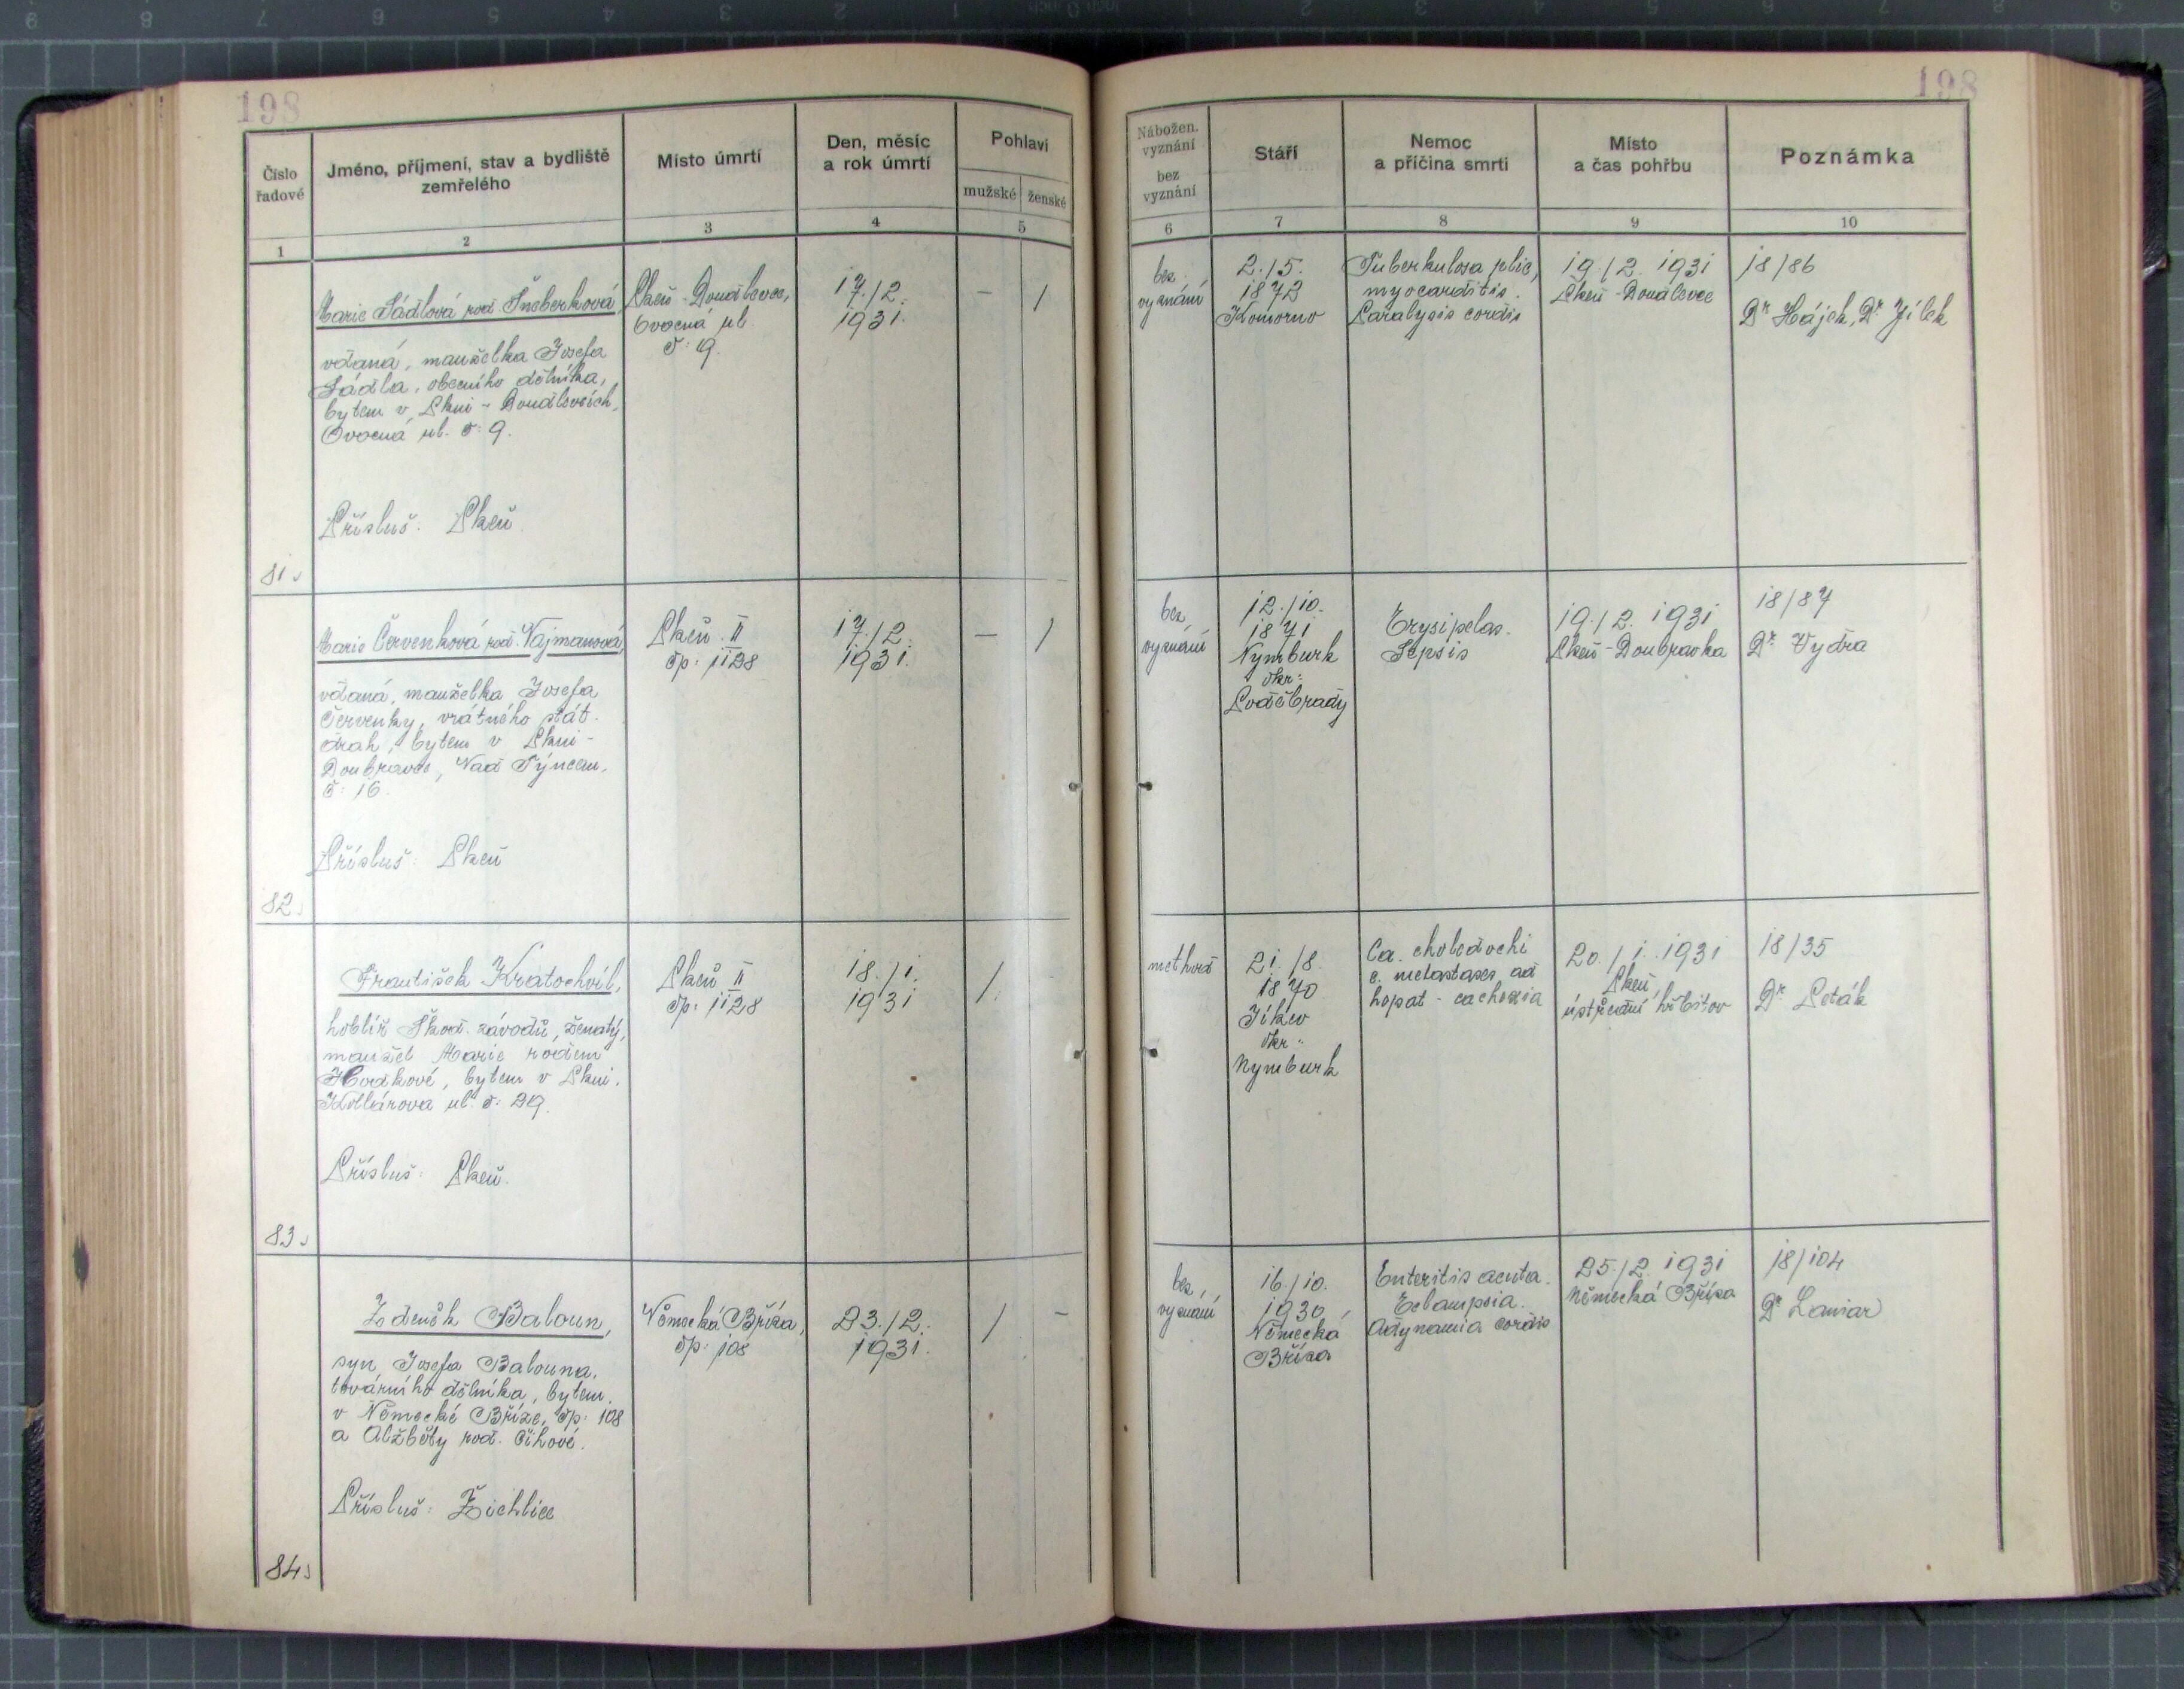 198
198
Číslo
řadové
Jméno, příjmení, stav a bydliště
zemřelého
Místo úmrtí
Den, měsíc
a rok úmrtí
Pohlaví
mužské
ženské
1
2
3
4
5
Nábožen.
vyznání
bez
vyznání
Stáří
Nemoc
a příčina smrti
Místo
a čas pohřbu
Poznámka
6
7
8
9
10
81
Marie Sádlová rod. Šneberková,
vdaná, manželka Josefa
Sádla, obecního dělníka,
bytem v Plzni-Doudlevcích,
Ovocná ul. č: 9.
Přísluš: Plzeň.
Plzeň-Doudlevce,
Ovocná ul.
č: 9.
17./2.
1931.
—
/
bez
vyznání
2./5.
1872
Komorno
Tuberkulosa plic,
myocarditis.
Paralysis cordis
19./2. 1931
Plzeň-Doudlevce
18/86
Dr Hájek, Dr Jílek
82
Marie Červenková rod. Vajmanová,
vdaná, manželka Josefa
Červenky, vrátného stát.
drah, bytem v Plzni-
Doubravce, Nad Týncem,
č: 16.
Přísluš: Plzeň
Plzeň II
čp: 1128
17./2.
1931.
—
/
bez
vyznání
12./10.
1871
Nymburk
okr:
Poděbrady
Erysipelas.
Sepsis
19./2. 1931
Plzeň-Doubravka
18/87
Dr Vydra
83
František Kratochvíl,
hoblíř Škod. závodů, ženatý,
manžel Marie rodem
Hodkové, bytem v Plzni,
Kollárova ul. č: 29.
Přísluš: Plzeň.
Plzeň II
čp: 1128
18./1.
1931
/
methord
21./8.
1870
Jíkev
okr:
Nymburk
Ca. choledochi
c. metastases ad
hepat-cachexia
20./1. 1931
Plzeň,
ústřední hřbitov
18/35
Dr Peták
84
Zdeněk Baloun,
syn Josefa Balouna,
továrního dělníka, bytem
v Německé Bříze, čp: 108
a Alžběty rod. Číhové.
Přísluš: Žichlice
Německá Bříza,
čp: 108
23./2.
1931.
/
—
bez
vyznání
16./10.
1930,
Německá
Bříza
Enteritis acuta.
Eclampsia.
Adynamia cordis
25./2. 1931
Německá Bříza
18/104
Dr Lamiar